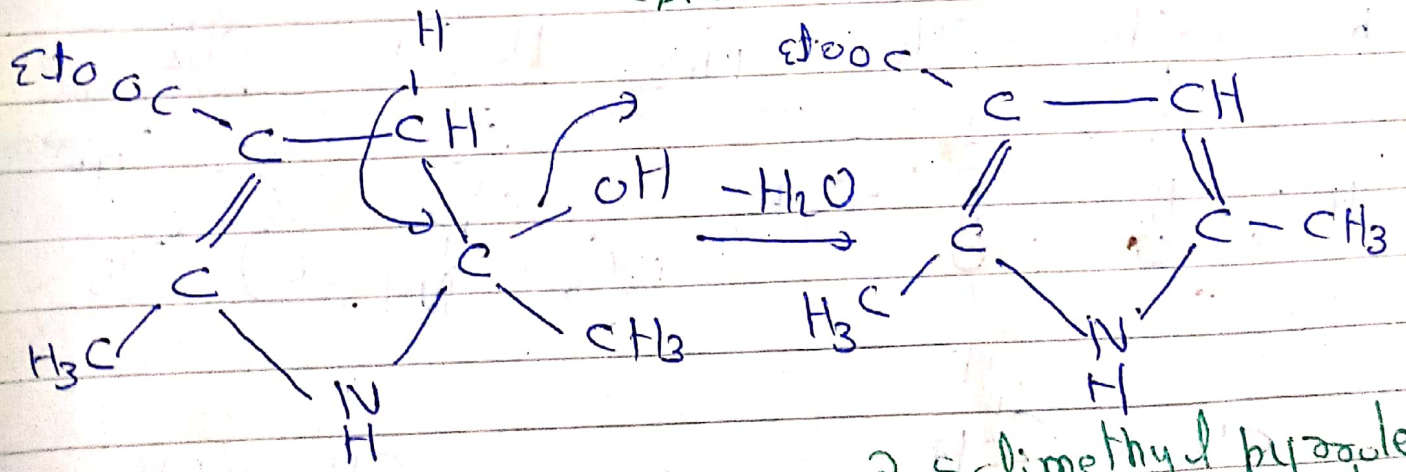 H
EtOOC
C — CH
OH
C
C
H3C
CH3
N
H
-H2O
EtOOC
C — CH
C
C - CH3
H3C
N
H
dimethyl pyrrole